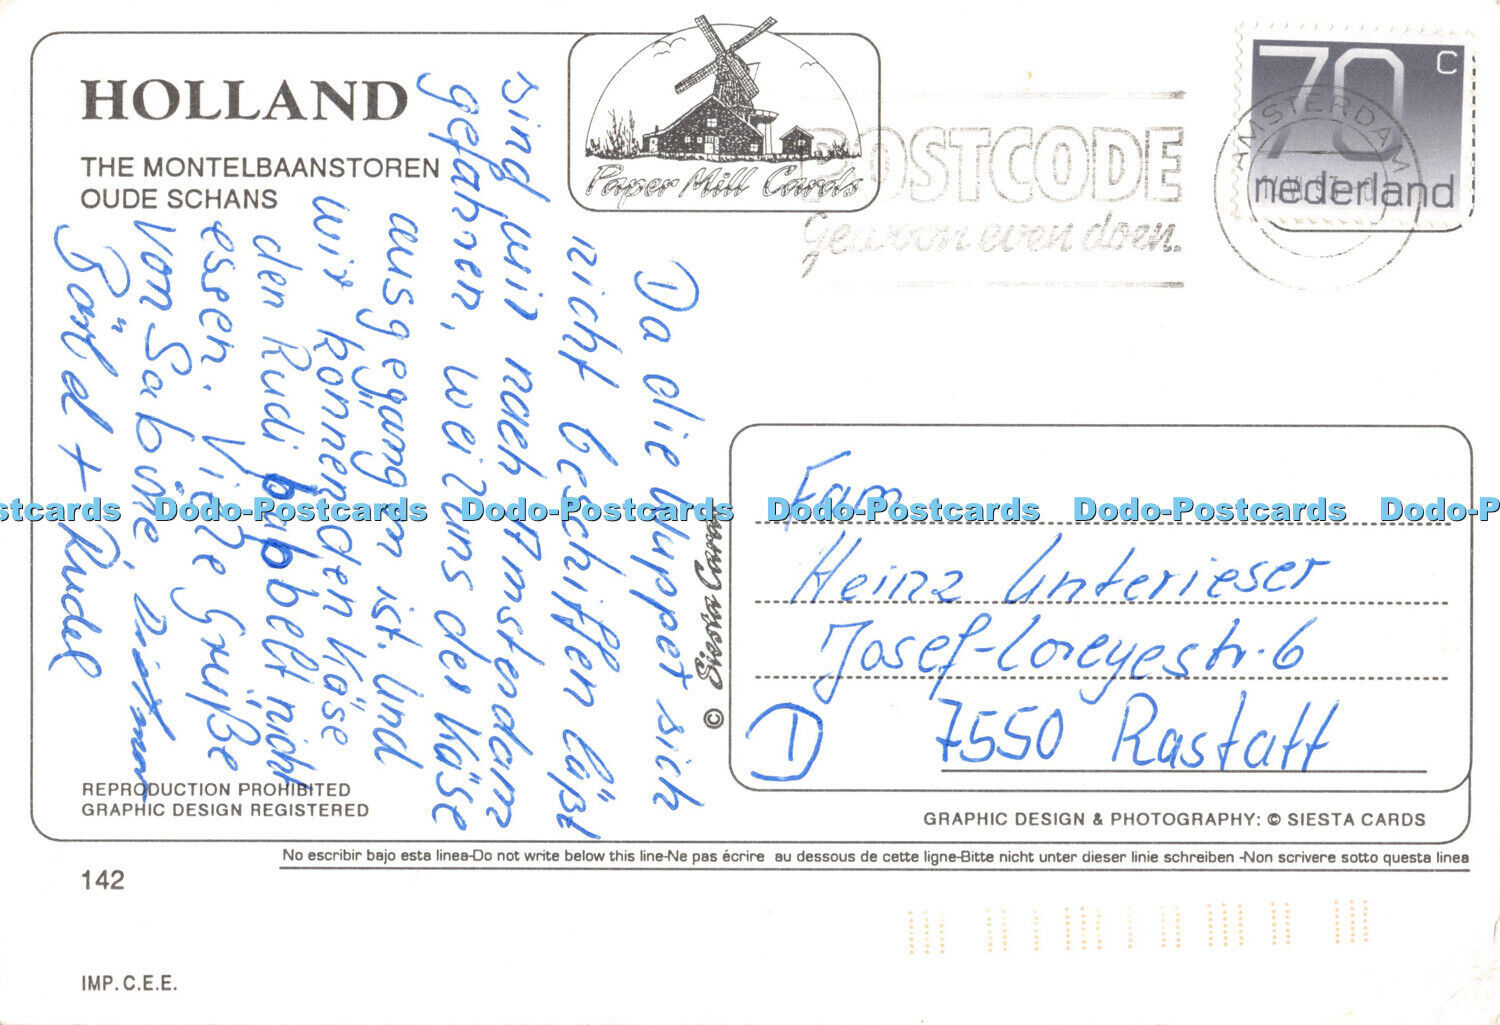 HOLLAND
THE MONTELBAANSTOREN
OUDE SCHANS
Paper Mill Cards
POSTCODE
Gewoon even doen.
AMSTERDAM
70 C
nederland
Da die Wuppet sich
nicht beschiffen läßt
sind wir nach Amsterdam
gefahren, weil uns der Käse
ausgegangen ist. Und
wir können den Käse
den Rudi babbelt nicht
essen. Viele Grüße
von Sabine,
Bärd + Rudel
© Siesta Card
Fam.
Heinz Unterieser
Josef-Loreyestr. 6
D 7550 Rastatt
REPRODUCTION PROHIBITED
GRAPHIC DESIGN REGISTERED
GRAPHIC DESIGN & PHOTOGRAPHY: © SIESTA CARDS
No escribir bajo esta linea-Do not write below this line-Ne pas écrire au dessous de cette ligne-Bitte nicht unter dieser linie schreiben -Non scrivere sotto questa linea
142
IMP. C.E.E.
stcards Dodo-Postcards Dodo-Postcards Dodo-Postcards Dodo-Postcards Dodo-P